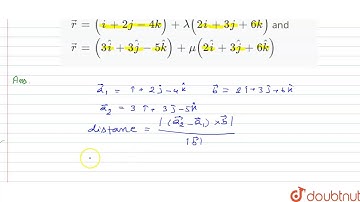 r⃗ = (i + 2j − 4k) + λ(2i + 3j + 6k) and
r⃗ = (3î + 3ĵ − 5k̂) + μ(2î + 3ĵ + 6k̂)
Ans
a⃗₁ = î + 2ĵ − 4k̂ b⃗ = 2î + 3ĵ + 6k̂
a⃗₂ = 3î + 3ĵ − 5k̂
distance = |(a⃗₂ − a⃗₁) × b⃗| / |b⃗|
doubtnut